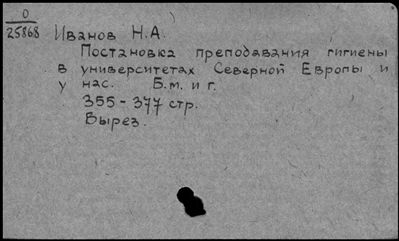 0
25868
Иванов Н.А.
Постановка преподавания гигиены
в университетах Северной Европы и
у нас. Б.м. и г.
355-377 стр.
Вырез